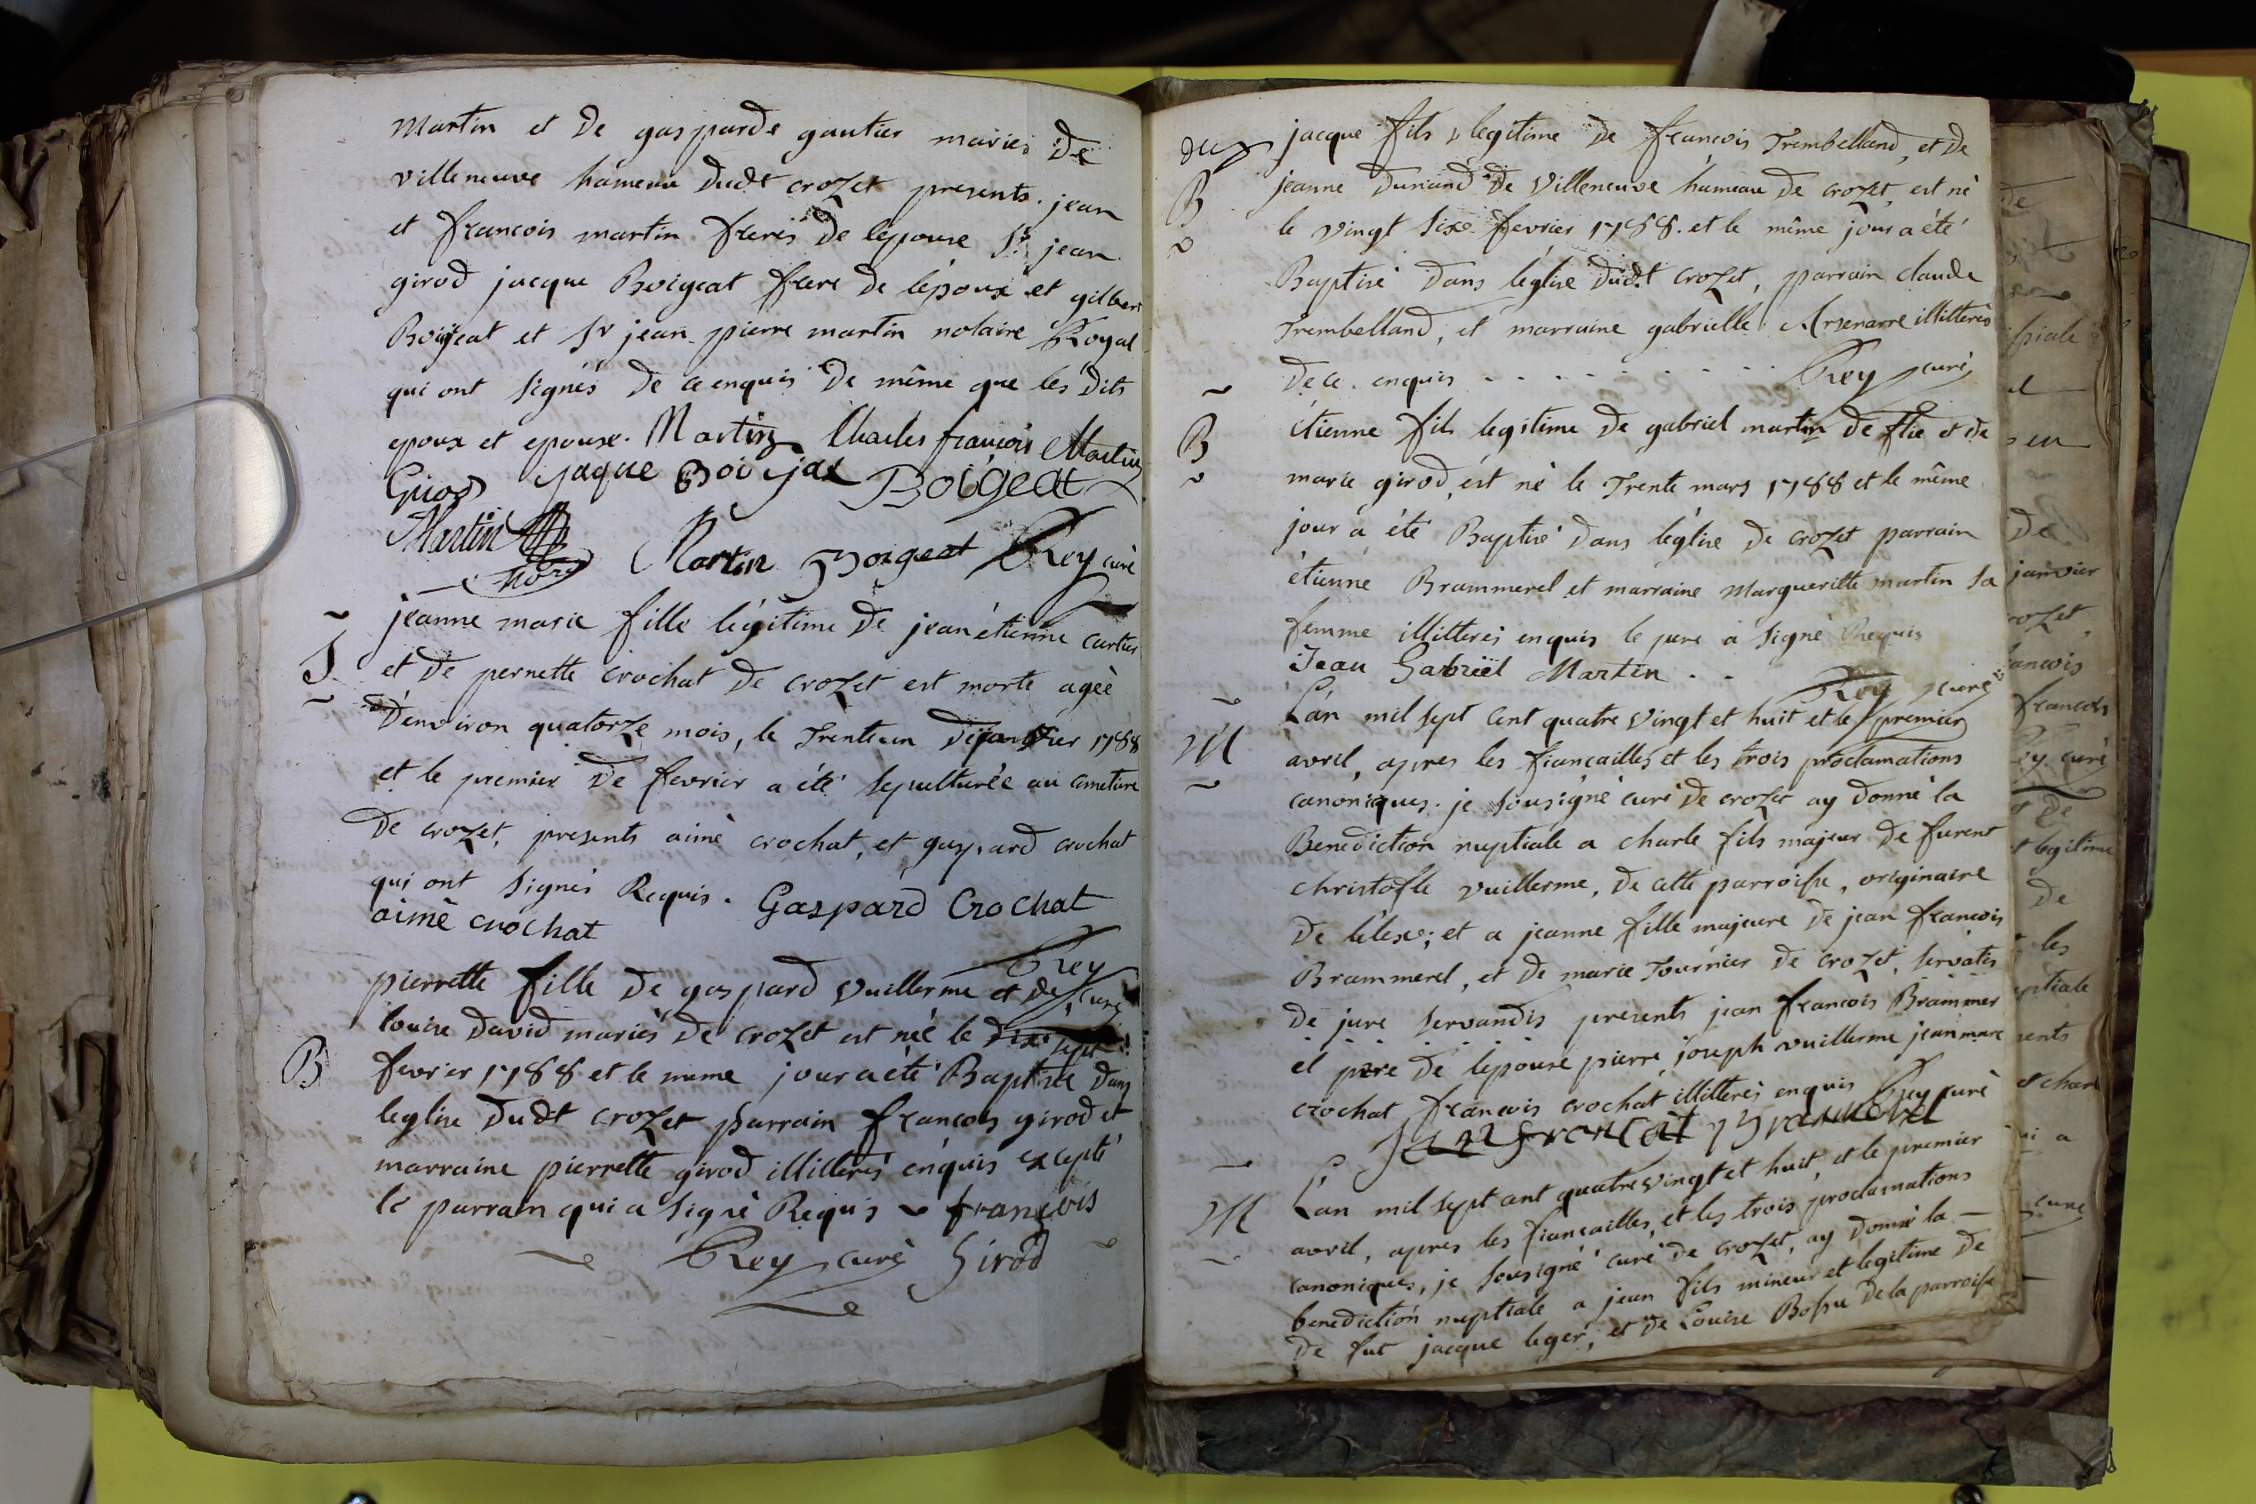 martin et de gasparde gautier mariés de
villeneuve hameau dudt crozet presents. jean
et francois martin freres de lépouse Sr jean
girod jacque Boigeat frere de lépoux et gilbert
Boigeat et Sr jean pierre martin notaire Royal
qui ont signés de ce enquis de même que les dits
epoux et epouse. Martin Charles francois Martin
Girod jaque Boijat Boigeat
Martin
Martin Boigeat Rey curé
S
jeanne marie fille légitime de jean étienne cartier
et de pernette crochat de crozet est morte ageè
d'environ quatorze mois, le trenteun de janvier 1788
et le premier de fevrier a été sepulturée au cimetiere
de crozet, presents aimè crochat, et gaspard crochat
qui ont signés Requis. Gaspard Crochat
aimè crochat
Rey curé
B
pierrette fille de gaspard vuillerme et de
louise david mariés de crozet est née le dix sept
fevrier 1788 et le meme jour a été Baptisée dans
leglise dudt crozet parrain francois girod et
marraine pierrette girod illitterés enquis excepté
le parrain qui a signè Requis francois
Rey curè Girod
B
jacque fils legitime de francois Trembelland, et de
jeanne dunand de villeneuve hameau de crozet, est nè
le vingt six fevrier 1788. et le même jour a été
Baptisé dans léglise dudt crozet, parrain claude
Trembelland, et marraine gabrielle illitterés
de ce enquis . . . . . . . . . Rey curé
B
étienne fils legitime de gabriel martin de flie et de
marie girod, est né le trente mars 1788 et le même
jour a été Baptisé dans léglise de crozet parrain
étienne Brammerel et marraine margueritte martin sa
femme illitterés enquis le pere a signé Requis
Jean Gabriël Martin . . Rey curé
M
L'an mil sept cent quatre vingt et huit et le premier
avril, apres les fiancailles et les trois proclamations
canoniques. je sousigné curé de crozet ay donné la
Benediction nuptiale a charle fils majeur de furent
christofle vuillerme, de cette parroisse, originaire
de lélex; et a jeanne fille majeure de jean francois
Brammerel, et de marie Tournier de crozet, servatis
de jure servandis presents jean francois Brammer
el pere de lépouse pierre joseph vuillerme jean marc
crochat francois crochat illitterés enquis Rey curé
Jean francoit Bramerel
M
L'an mil sept cent quatre vingt et huit, et le premier
avril, apres les fiancailles, et les trois proclamations
canoniques, je sousigné curé de crozet, ay donné la
benediction nuptiale a jean fils mineur et legitime de
de fut jacque leger, et de Louise Bossu de la parroisse